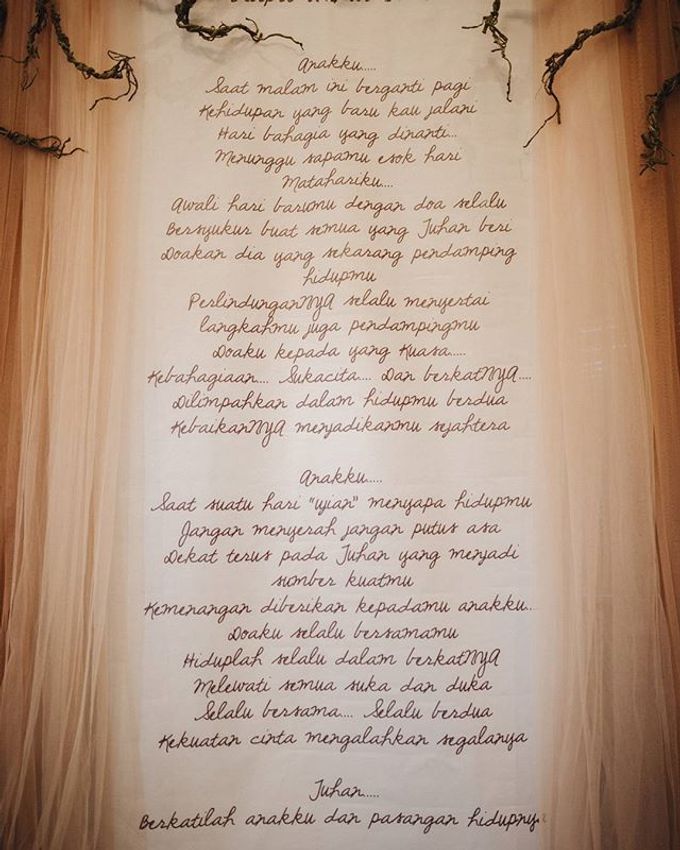 Anakku.....
Saat malam ini berganti pagi
Kehidupan yang baru kau jalani
Hari bahagia yang dinanti...
Menunggu sapamu esok hari
Matahariku....
Awali hari barumu dengan doa selalu
Bersyukur buat semua yang Tuhan beri
Doakan dia yang sekarang pendamping
hidupmu
PerlindunganNYA selalu menyertai
langkahmu juga pendampingmu
Doaku kepada yang Kuasa.....
Kebahagiaan.... Sukacita.... Dan berkatNYA....
Dilimpahkan dalam hidupmu berdua
KebaikanNYA menjadikanmu sejahtera
Anakku.....
Saat suatu hari "ujian" menyapa hidupmu
Jangan menyerah jangan putus asa
Dekat terus pada Tuhan yang menjadi
sumber kuatmu
Kemenangan diberikan kepadamu anakku...
Doaku selalu bersamamu
Hiduplah selalu dalam berkatNYA
Melewati semua suka dan duka
Selalu bersama.... Selalu berdua
Kekuatan cinta mengalahkan segalanya
Tuhan.....
Berkatilah anakku dan pasangan hidupnya